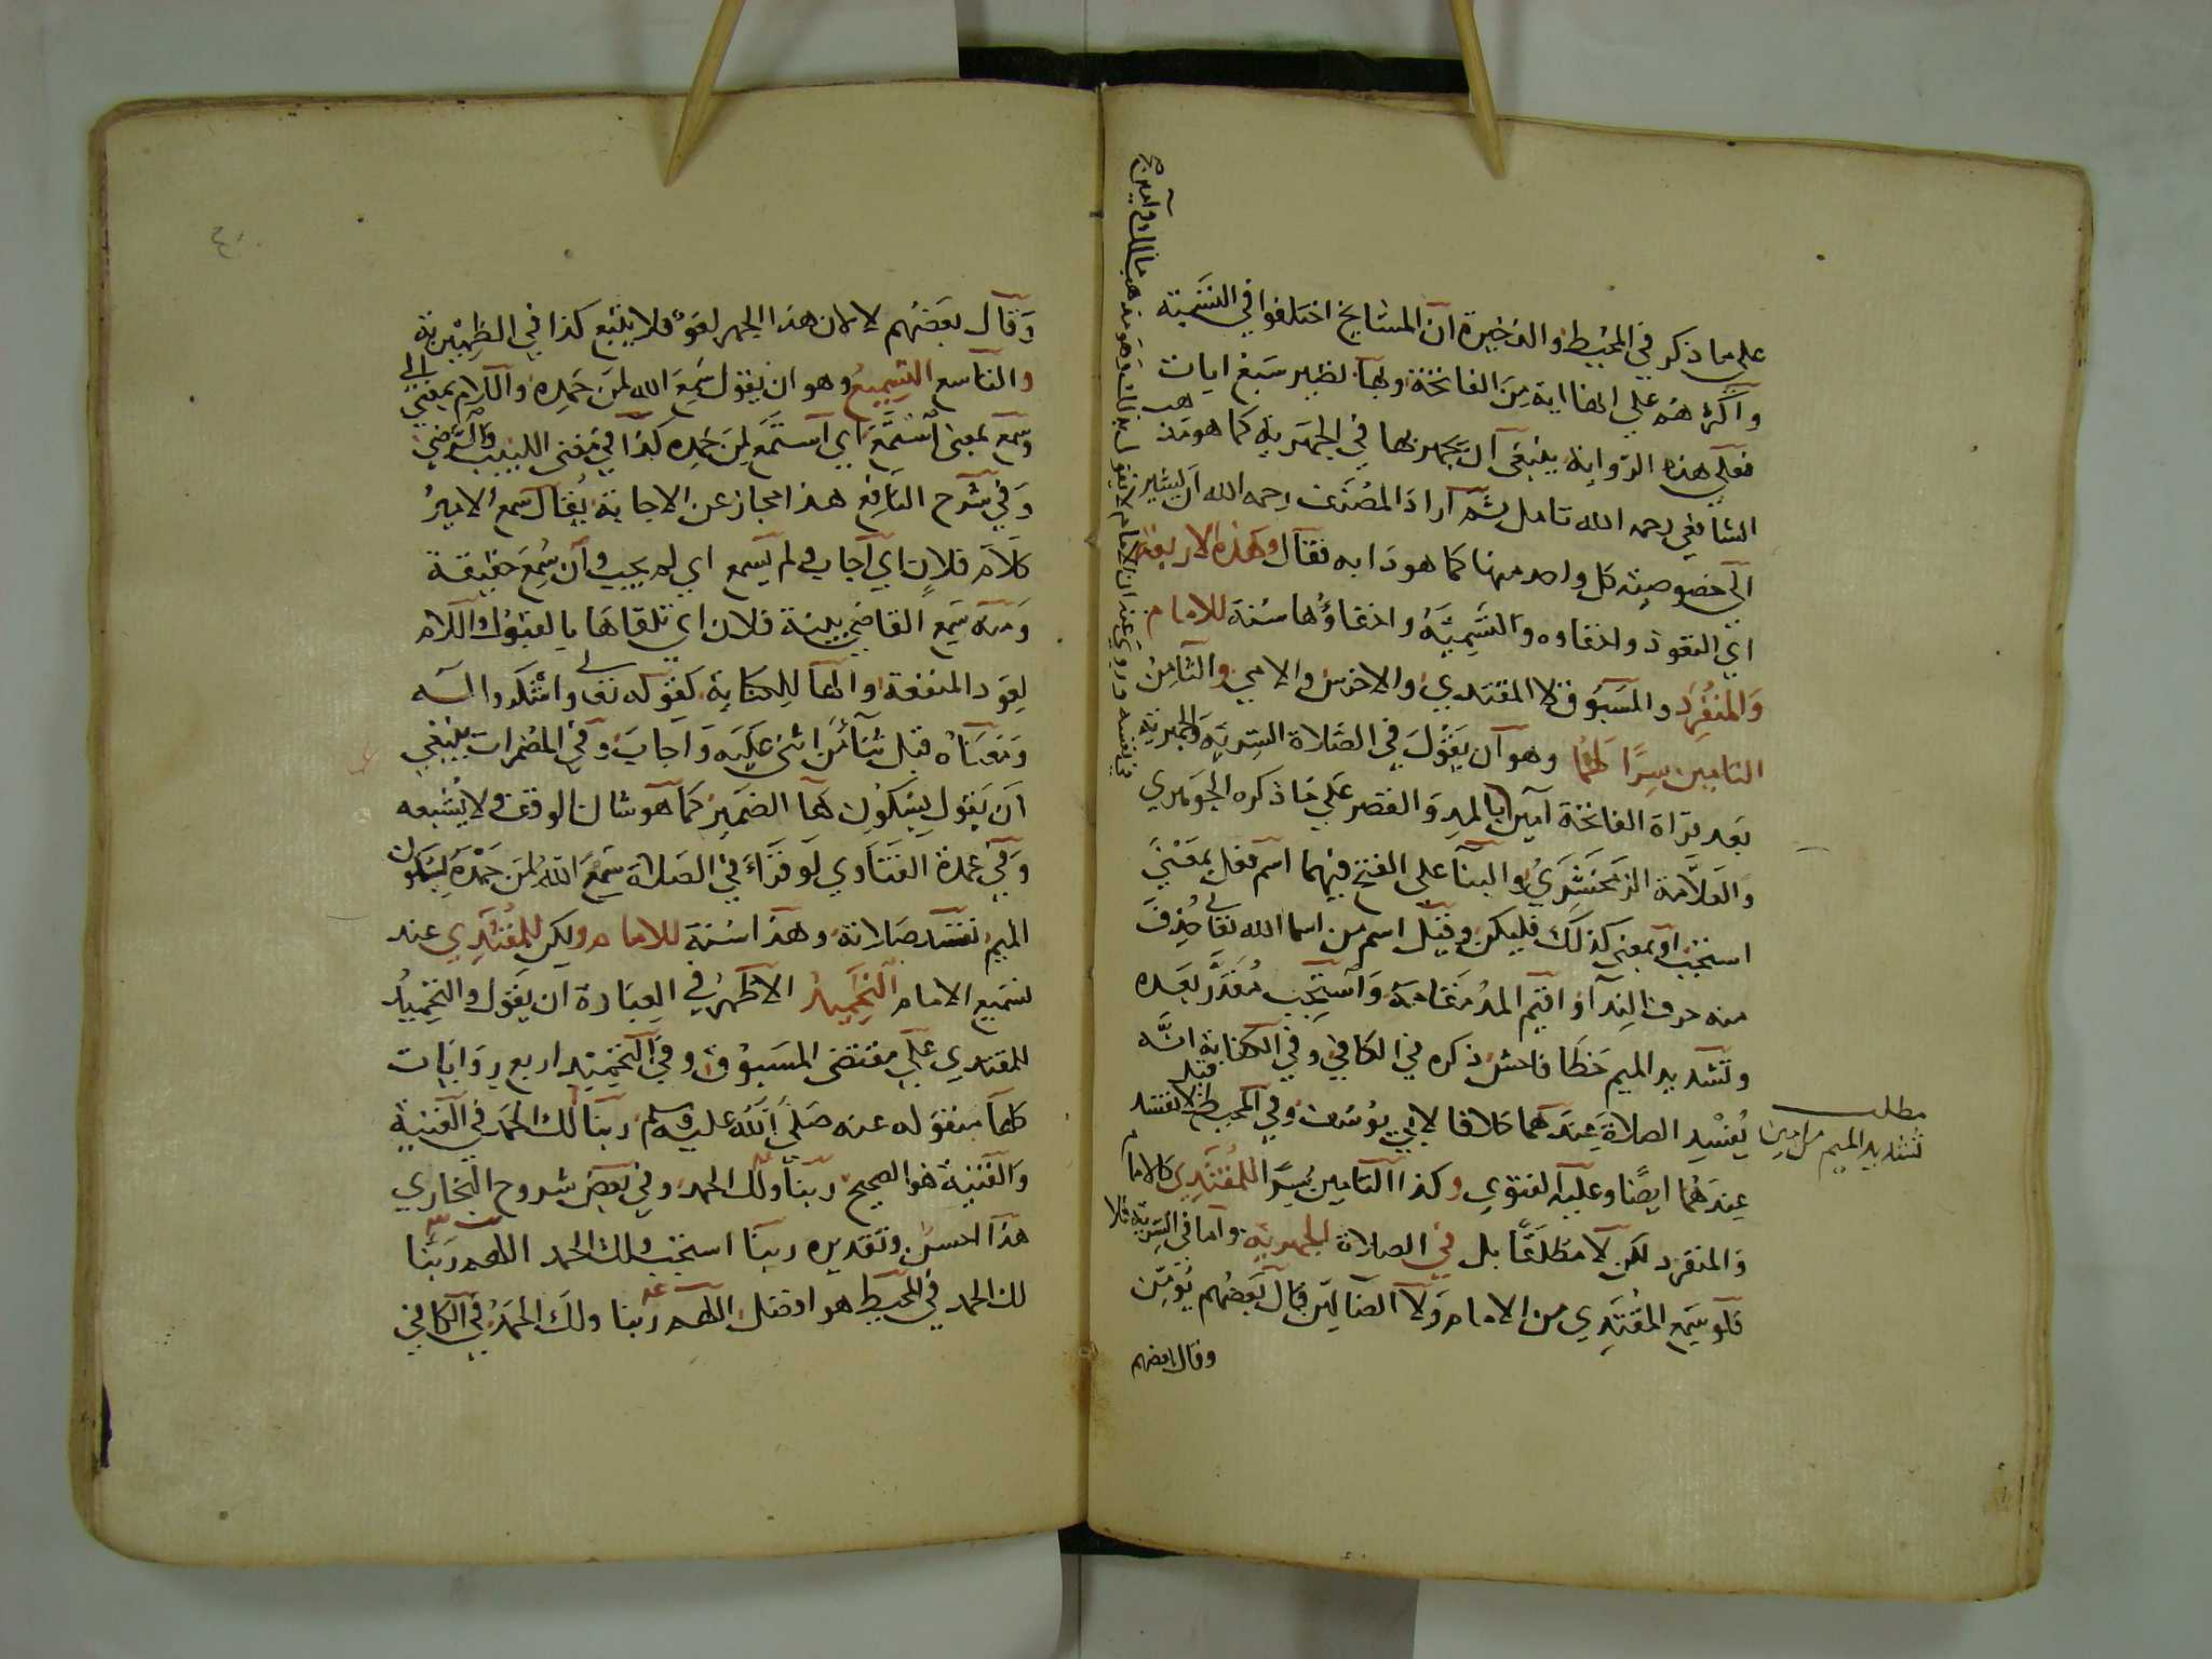 على ما ذكر في المحيط والذخيرة ان المشايخ اختلفوا في التسمية
واكثرهم على انها اية من الفاتحة وبها نصير سبع ايات
فعلى هذه الرواية ينبغي ان يجهر بها في الجهرية كما هو مذهب
الشافعي رحمه الله تامل ثم اراد المصنف رحمه الله ان يشير
الى خصوصية كل واحد منها كما هو دابه فقال وهذه الاربعة
اي التعوذ واخفاوه والتسمية واخفاؤها سنة للامام
والمنفرد والمسبوق لا المقتدي والاخرس والامي والثامن
التامين سرا لهما وهو ان يقول في الصلاة السرية والجهرية
بعد قراة الفاتحة آمين بالمد والقصر على ما ذكره الجوهري
والعلامة الزمخشري والبنا على الفتح فيهما اسم فعل بمعنى
استجب او بمعنى كذلك فليكن وقيل اسم من اسما الله تعالى حذف
منه حرف الندا واقيم المد مقامه واستجب مقدر بعده
وتشديد الميم خطا فاحش ذكره في الكافي وفي الكفاية انه
يفسد الصلاة عندهما خلافا لابي يوسف وفي المحيط قيل لا تفسد
عندهما ايضا وعليه الفتوي وكذا التامين سرا للمقتدي كالامام
والمنفرد لكن لا مطلقا بل في الصلاة الجهرية واما في السرية فلا
فلو سمع المقتدي من الامام ولا الضالين قال بعضهم يؤمن
وقال بعضهم
مطلب
تشديد الميم من امين
وروي عنه ان الامام لا يقول بذلك وهو مذهب مالك وآمين
في نفسه
وقال بعضهم لا لان هذا الجهر لغو فلا يتبع كذا في الظهيرية
والتاسع التسميع وهو ان يقول سمع الله لمن حمده واللام بمعنى الى
وسمع بمعنى استمع اي استمع لمن حمده كذا في مغني اللبيب والرضي
وفي شرح النافع هذا مجاز عن الاجابة يقال سمع الامير
كلام فلان اي اجاب ولم يسمع اي لم يجيب وان سمع حقيقة
ومنه سمع القاضي بينة فلان اي تلقاها بالقبول واللام
لعود المنفعة والها للكناية كقوله تعالى واشكروا له
ومعناه قبل ثنا من اثنى عليه واجاب وفي المضمرات ينبغي
ان يقول بسكون ها الضمير كما هو شان الوقف ولا يشبعه
وفي عمدة الفتاوي لو قراء في الصلاة سمع الله لمن حمده بسكون
الميم تفسد صلاته وهذا سنة للامام ولكن للمقتدي عند
تسميع الامام التحميد الاظهر في العبارة ان يقول والتحميد
للمقتدي على مقتضى المسبوق وفي التحميد اربع روايات
كلها منقوله عنه صلى الله عليه وسلم ربنا لك الحمد في القنية
والغنية هو الصحيح ربنا ولك الحمد وفي بعض شروح البخاري
هذا احسن وتقديره ربنا استجب ولك الحمد اللهم ربنا
لك الحمد في المحيط هو افضل اللهم ربنا ولك الحمد في الكافي